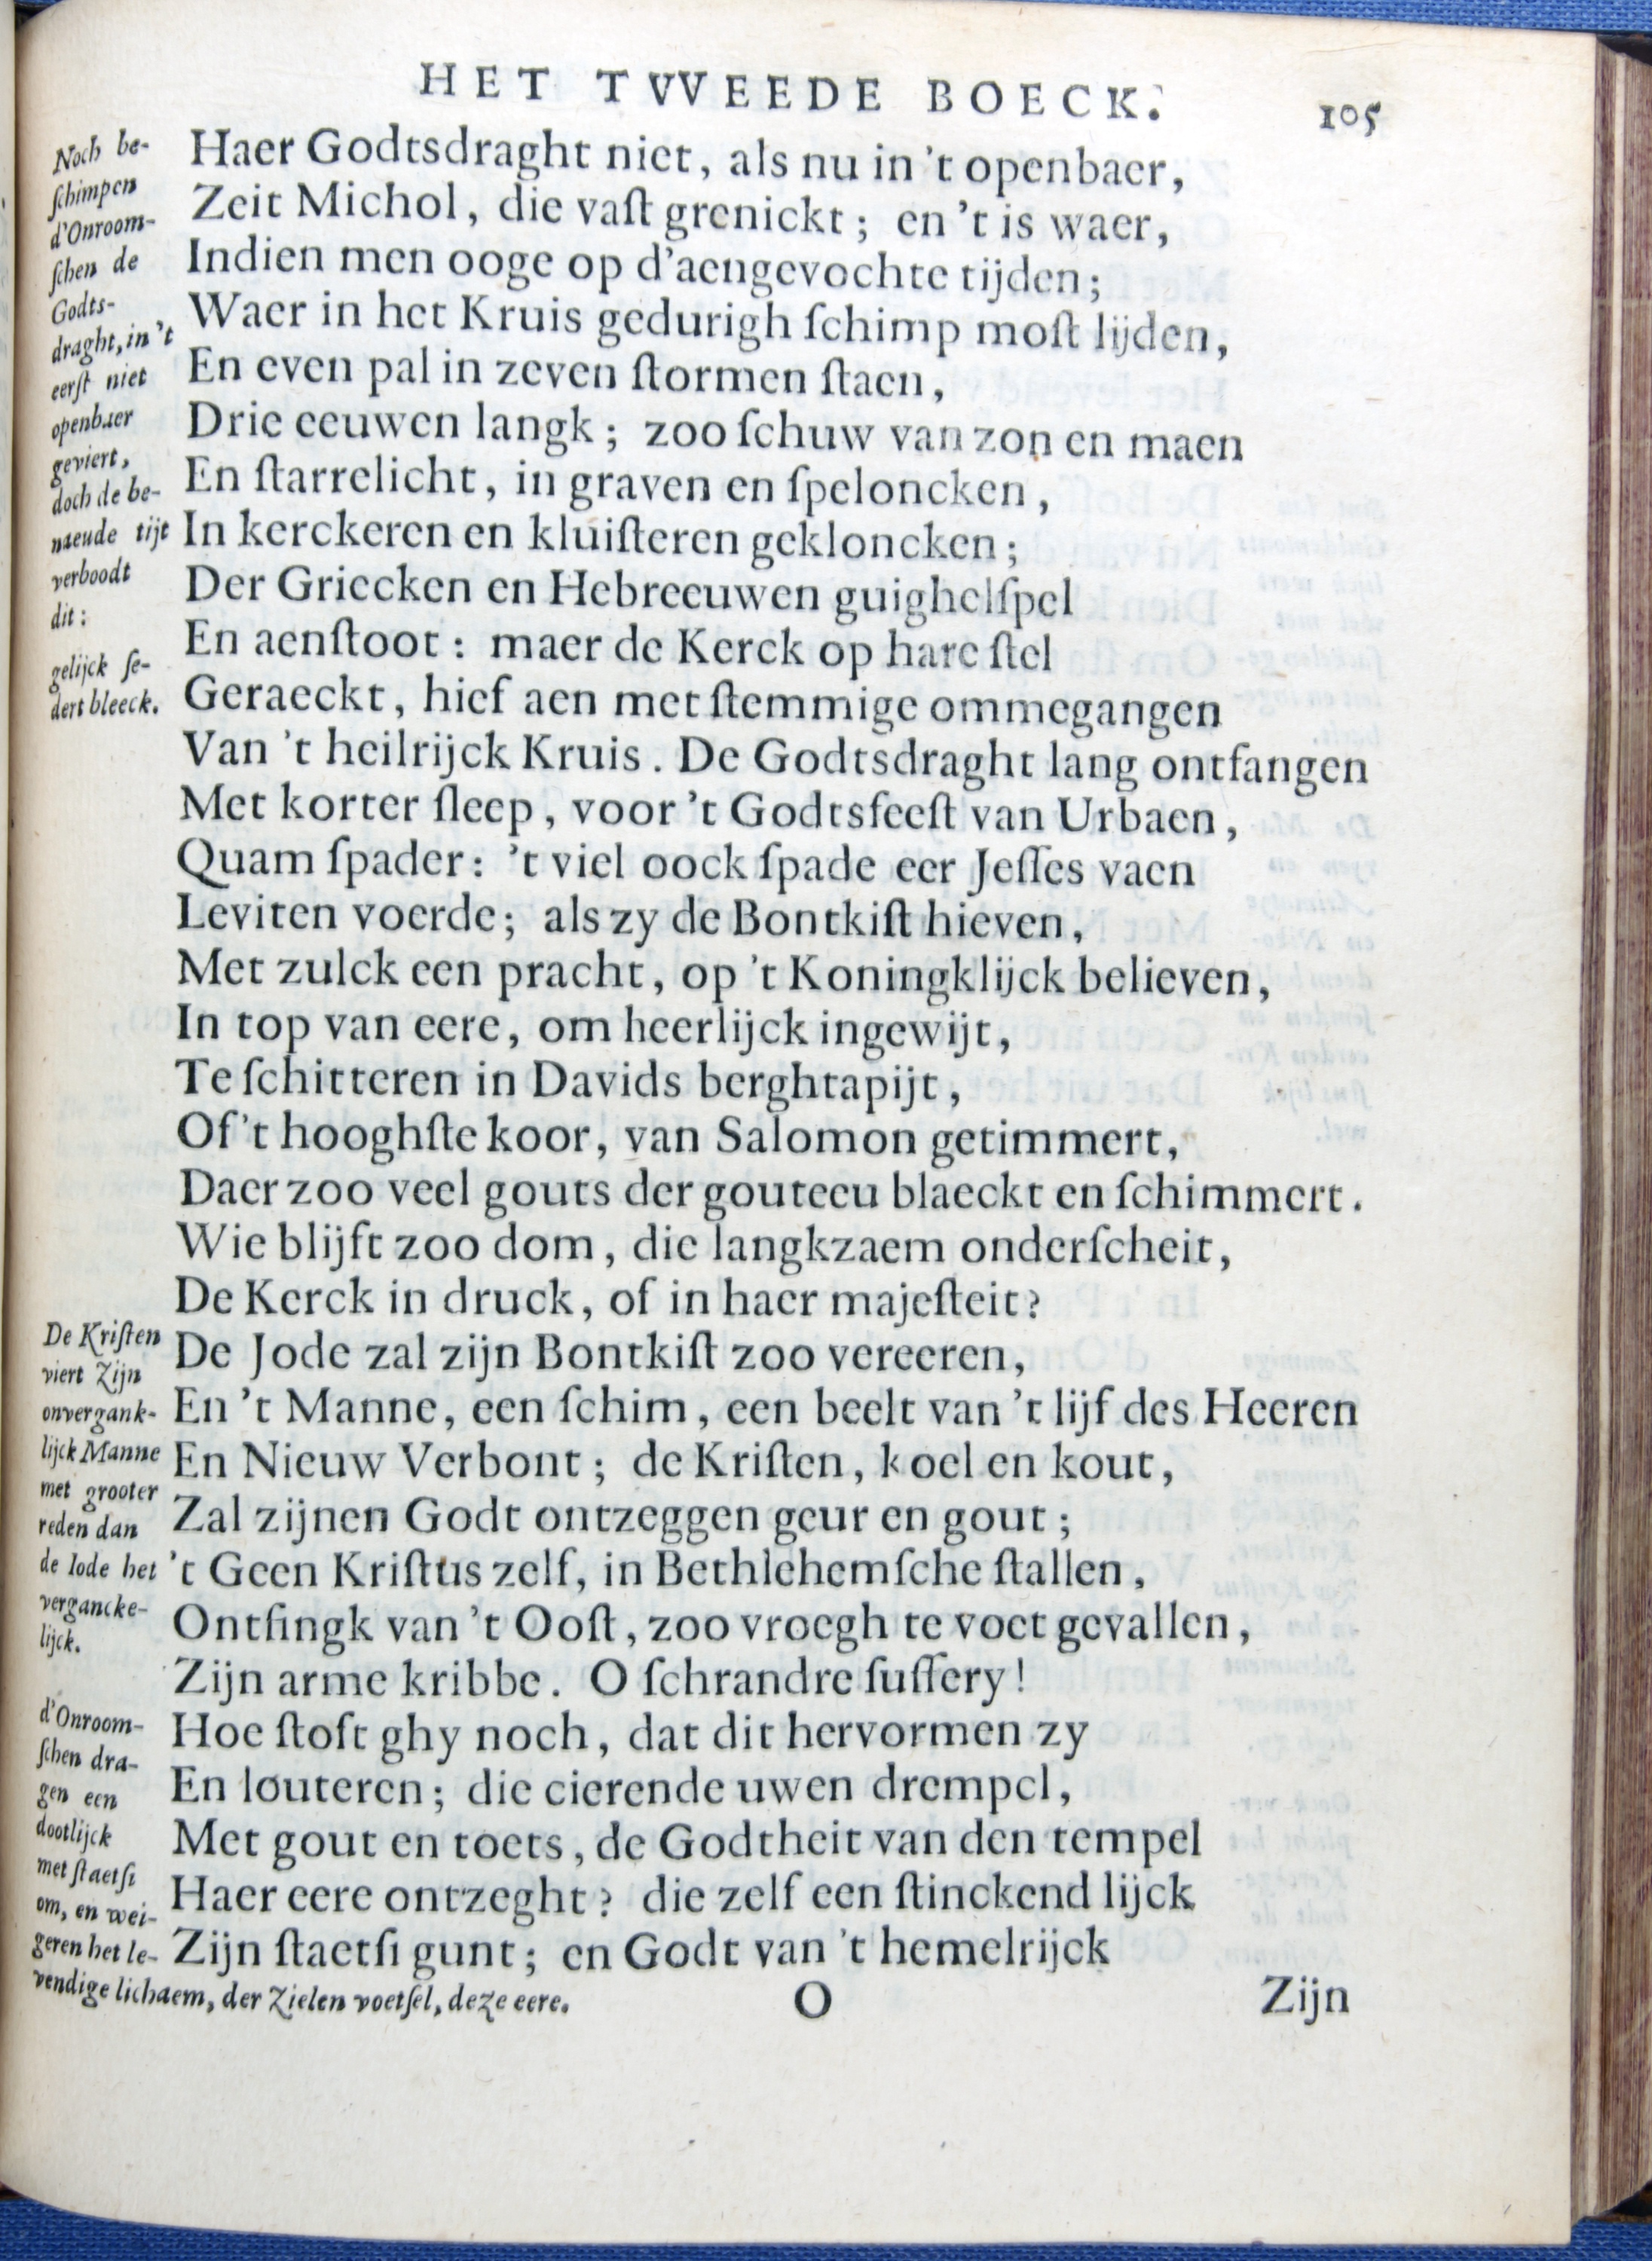 HET TVVEEDE BOECK.
105
Haer Godtsdraght niet, als nu in 't openbaer,
Zeit Michol, die vaſt grenickt; en 't is waer,
Indien men ooge op d'aengevochte tijden;
Waer in het Kruis gedurigh ſchimp moſt lijden,
En even pal in zeven ſtormen ſtaen,
Drie eeuwen langk; zoo ſchuw van zon en maen
En ſtarrelicht, in graven en ſpeloncken,
In kerckeren en kluiſteren gekloncken;
Der Griecken en Hebreeuwen guighelſpel
En aenſtoot: maer de Kerck op hare ſtel
Geraeckt, hief aen met ſtemmige ommegangen
Van 't heilrijck Kruis. De Godtsdraght lang ontfangen
Met korter ſleep, voor 't Godtsfeeſt van Urbaen,
Quam ſpader: 't viel oock ſpade eer Jeſſes vaen
Leviten voerde; als zy de Bontkiſt hieven,
Met zulck een pracht, op 't Koningklijck believen,
In top van eere, om heerlijck ingewijt,
Te ſchitteren in Davids berghtapijt,
Of 't hooghſte koor, van Salomon getimmert,
Daer zoo veel gouts der gouteeu blaeckt en ſchimmert.
Wie blijft zoo dom, die langkzaem onderſcheit,
De Kerck in druck, of in haer majeſteit?
De Jode zal zijn Bontkiſt zoo vereeren,
En 't Manne, een ſchim, een beelt van 't lijf des Heeren
En Nieuw Verbont; de Kriſten, koel en kout,
Zal zijnen Godt ontzeggen geur en gout;
't Geen Kriſtus zelf, in Bethlehemſche ſtallen,
Ontfingk van 't Ooſt, zoo vroegh te voet gevallen,
Zijn arme kribbe. O ſchrandre ſuſſery!
Hoe ſtoft ghy noch, dat dit hervormen zy
En louteren; die cierende uwen drempel,
Met gout en toets, de Godtheit van den tempel
Haer eere ontzeght? die zelf een ſtinckend lijck
Zijn ſtaetſi gunt; en Godt van 't hemelrijck
Noch be-
ſchimpen
d'Onroom-
ſchen de
Godts-
draght, in 't
eerſt niet
openbaer
geviert,
doch de be-
naeude tijt
verboodt
dit:
gelijck ſe-
dert bleeck.
De Kriſten
viert Zijn
onvergank-
lijck Manne
met grooter
reden dan
de Iode het
vergancke-
lijck.
d'Onroom-
ſchen dra-
gen een
dootlijck
met ſtaetſi
om, en wei-
geren het le-
vendige lichaem, der Zielen voetſel, deze eere.
O
Zijn